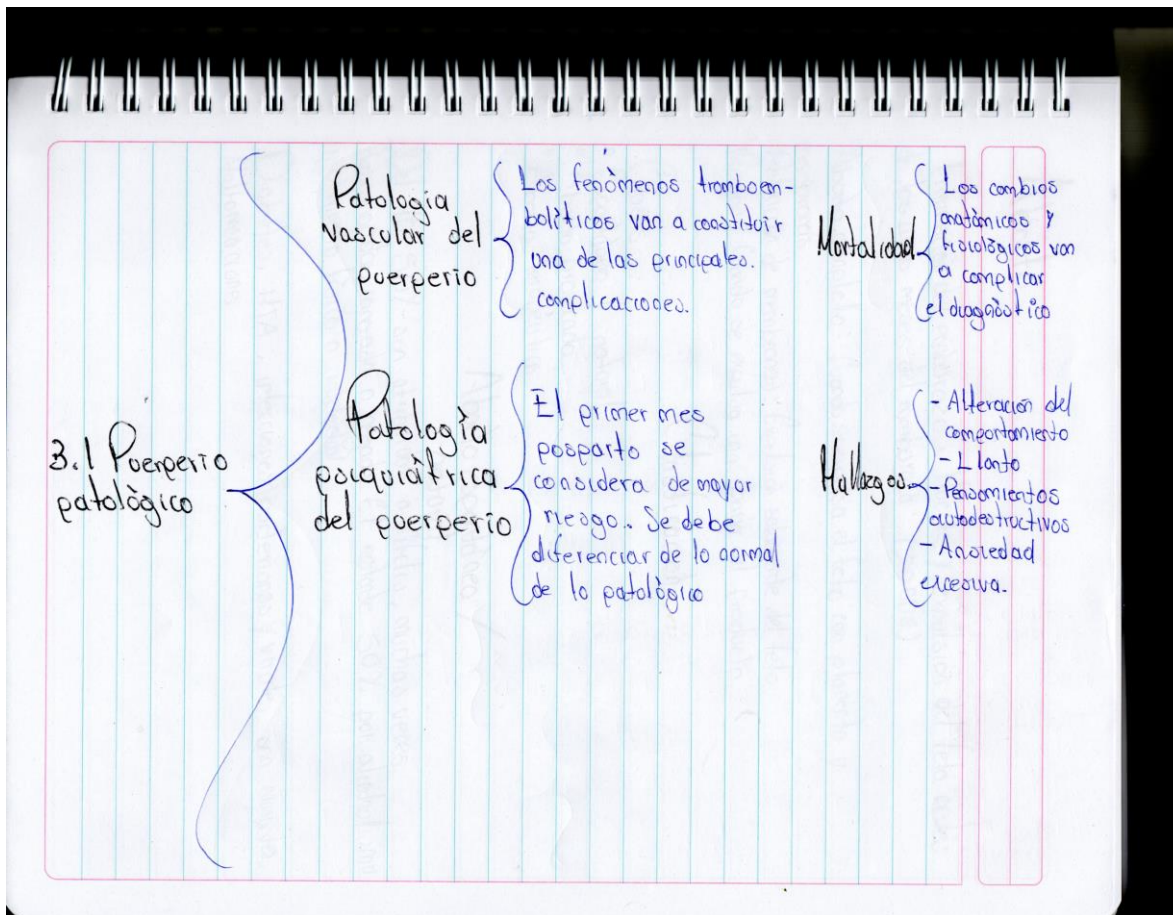 3.1 Puerperio
patològico
Patologia
vascular del
puerperio
Los fenòmenos tromboem-
bolìticos van a constituir
una de las principales.
complicaciones.
Mortalidad
Los cambios
anatòmicos y
fisiològicos van
a complicar
el diagnòstico
Patologìa
psiquiàtrica
del puerperio
El primer mes
posparto se
considera de mayor
riesgo. Se debe
diferenciar de lo normal
de lo patològico
Hallazgos
- Alteración del
comportamiento
- Llanto
- Pensamientos
autodestructivos
- Ansiedad
excesiva.